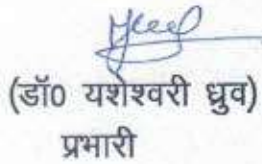 (डॉ0 यशेश्वरी ध्रुव)
प्रभारी